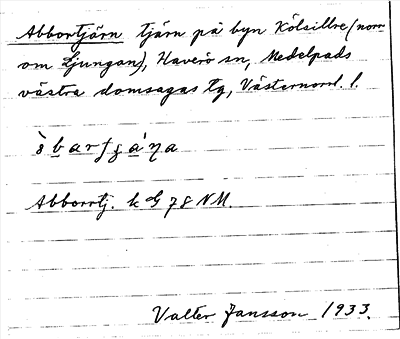 Abbortjärn tjärn på byn Kölsillre (norr
om Ljungan), Haverö sn, Medelpads
västra domsagas tg, Västernorrl. l.
Abborrtj. k G 78 NM.
Valter Jansson 1933.